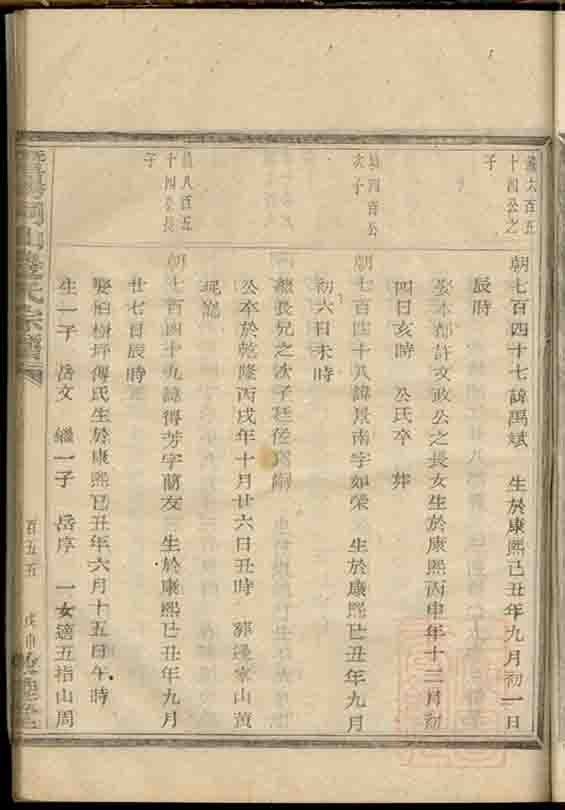 六百五
十四公之
子
朝七百四十七諱禹斌 生於康熙己丑年九月初一日
辰時
娶本都許文政公之長女生於康熙丙申年十二月初
四日亥時 公氏卒 葬
四百公
次子
朝七百四十八諱景南字如榮 生於康熙己丑年九月
初六日未時
長兄之次子廷佐
公卒於乾隆丙戌年十月廿六日丑時 葬邊家山黃
八百五
十四公長
子
朝七百四十九諱得芳字蘭友 生於康熙己丑年九月
廿七日辰時
娶柏樹坪傅氏生於康熙己丑年六月十五日午時
生一子 岳文 繼一子 岳序 一女適五指山周
氏宗譜
百五五
戊申